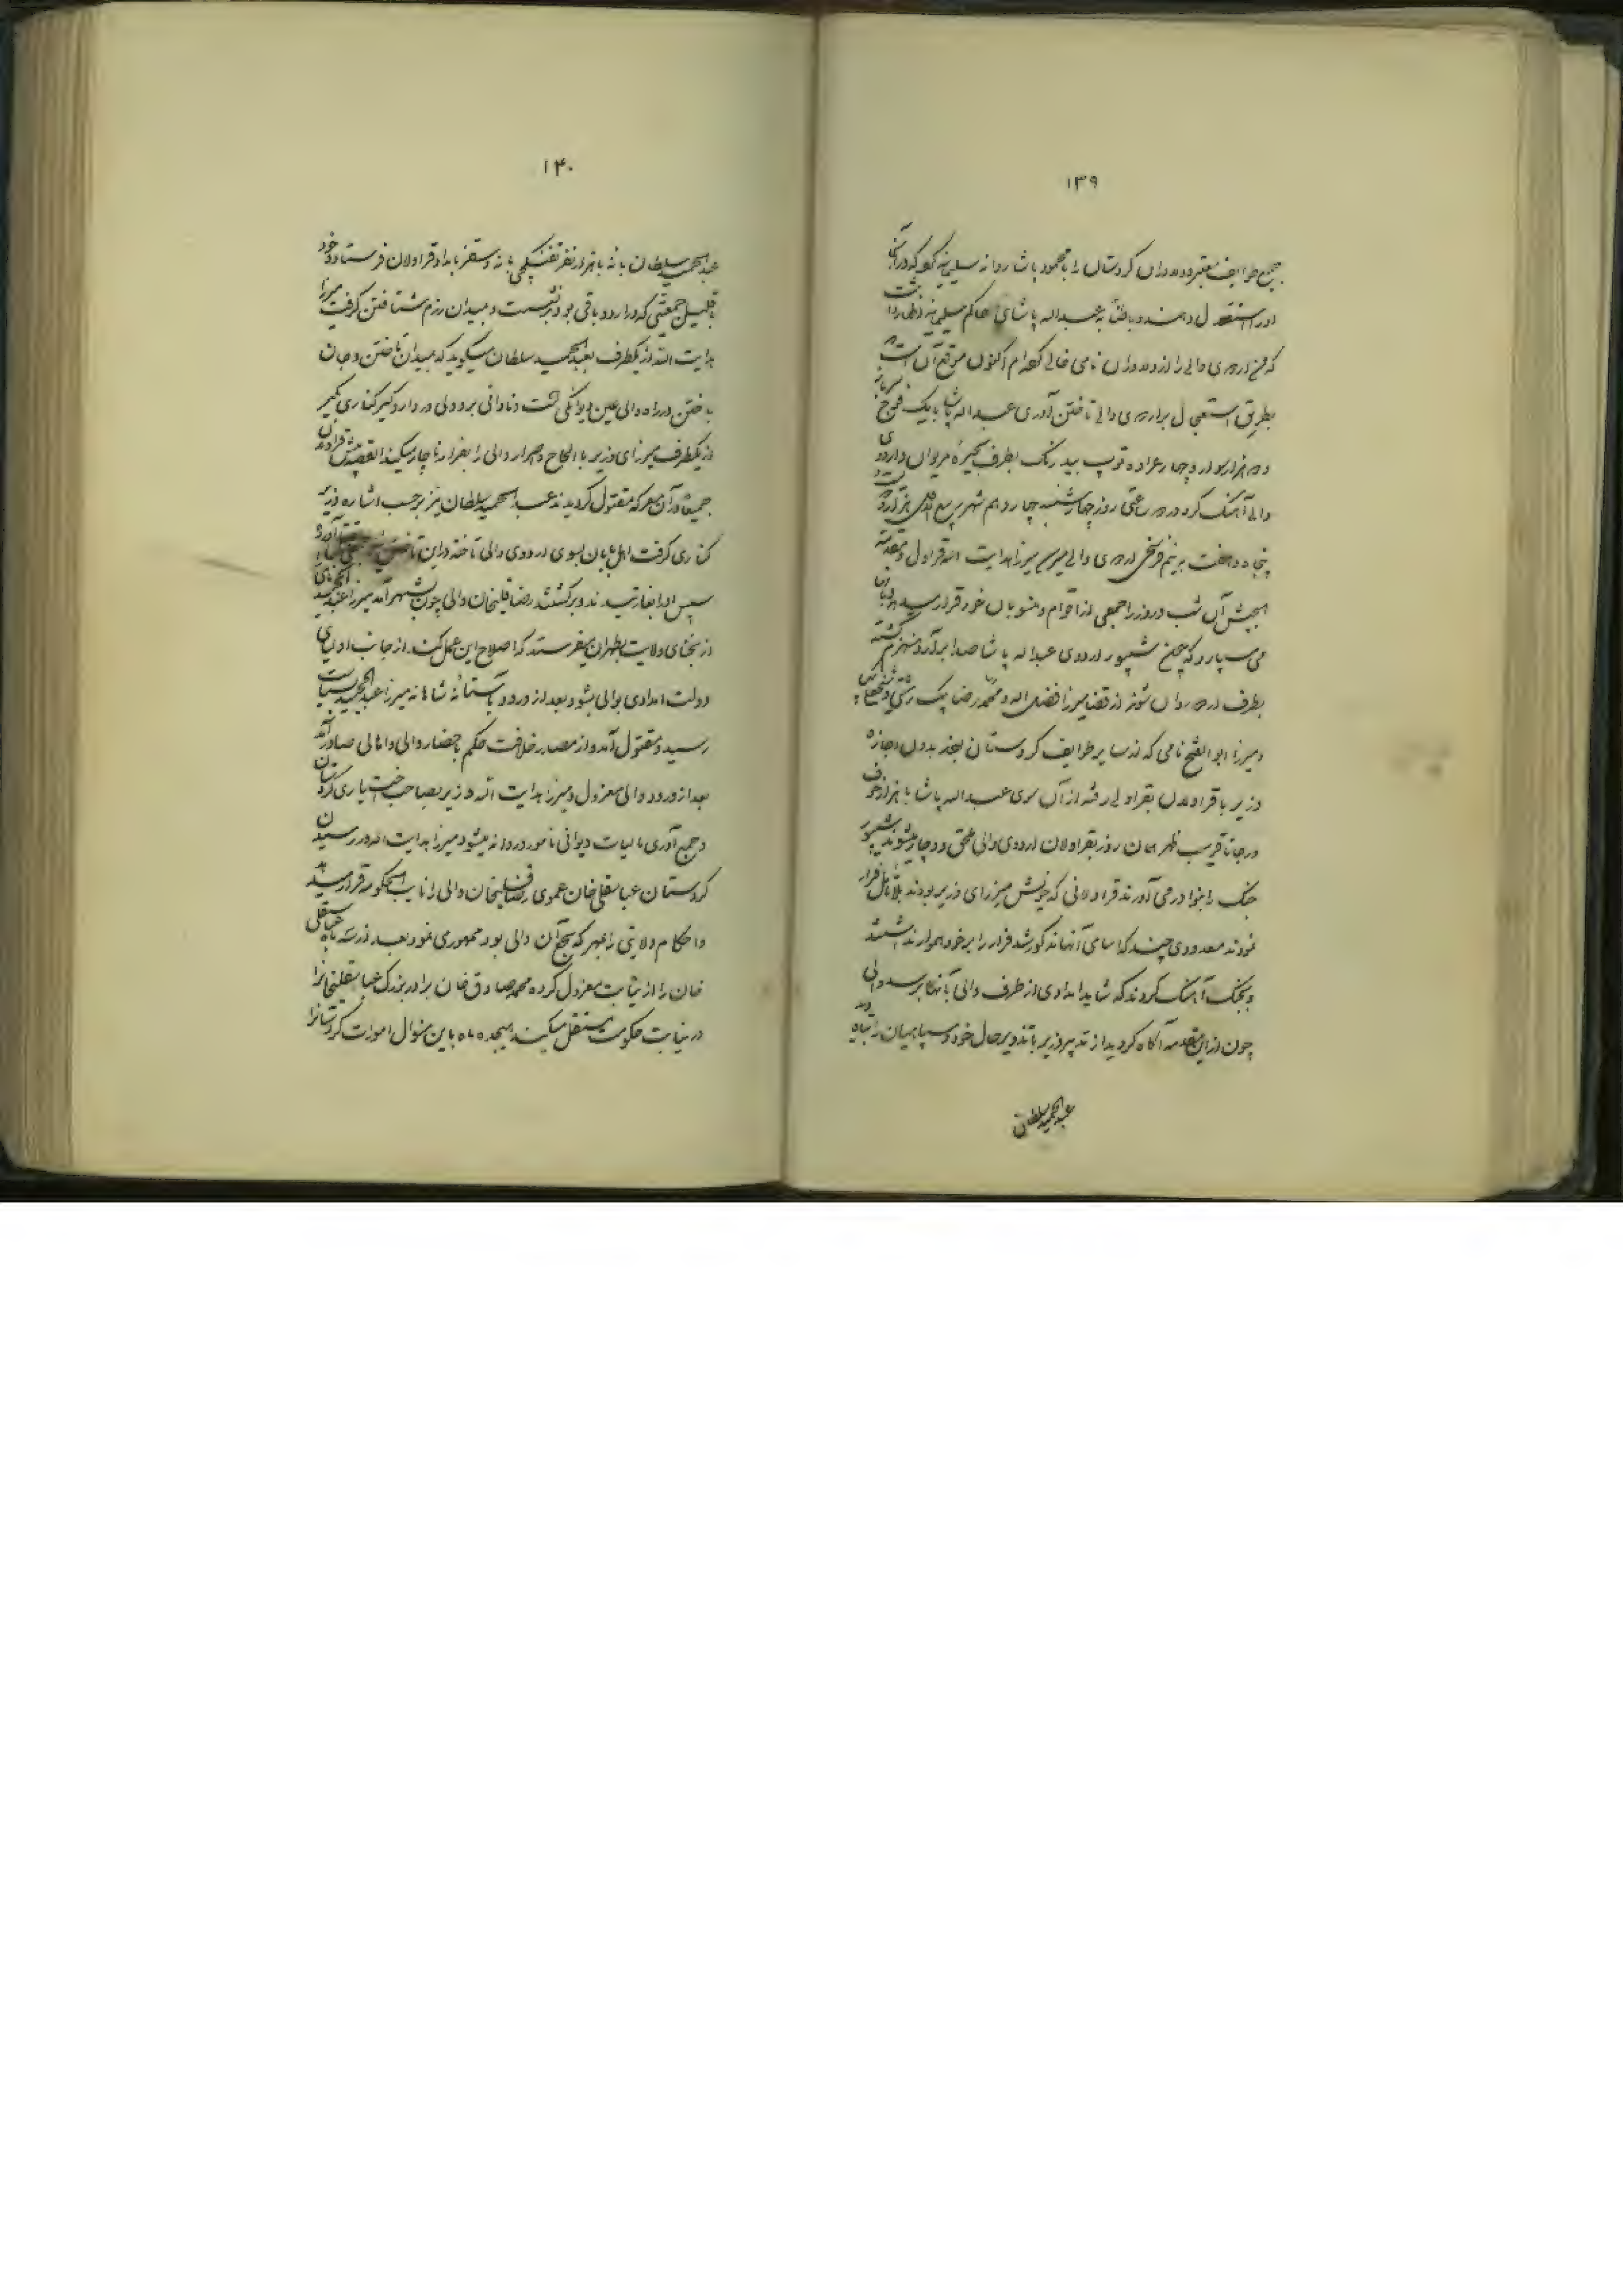 ۱۳۹
جمیع طوایف معتبره و دلاوران کردستان را با محمود پاشا روانه سلیمانیه کرد که در آنجا
او را استقلال دهند و بافشا به عبداله پاشای حاکم سلیمانیه اظهار داشت
که من اردوی والی را از دلاوران نامی خالی کرده‌ام اکنون موقع آن است
بطریق استعجال بر اردوی والی تاختن آوری عبداله پاشا با یک فوج سرباز
و دو هزار سوار و چهار عراده توپ بیدرنگ بطرف بحیره مریوان و اردوی
والی آهنگ کرد در دو ساعتی روز چهارشنبه چهاردهم شهر ربیع هزار و دویست و
پنجاه و هفت بر نیم فرسخی اردوی والی میرسد میرزا هدایت الله قراول و مقدمة
الجیش آن شب و روز را جمعی از اقوام و منسوبان خود قرار
می سپارد که چون شیپور اردوی عبداله پاشا صدا برآرد منهزم گشته
بطرف اردو روان شوند از قضا میرزا فضل اله و محمد رضا بیک
و میرزا ابوالفتح نامی که از سایر طوایف کردستان بودند بدون اجازه
وزیر با قراولان بقراولی رفته از آن سوی عبداله پاشا با هزار خوف
و رجا تا قریب ظهر همان روز بقراولان اردوی والی ملحق و دچار میشوند شیپور
جنگ را بنوا در می آورند قراولانی که خویش میرزای وزیر بودند بلا تأمل فرار
نمودند معدودی چند که اسامی آنها مذکور شد فرار را بر خود هموار نداشتند
و بجنگ آهنگ کردند که شاید امدادی از طرف والی بآنها برسد والی
چون از این مقدمه آگاه گردید از تدبیر وزیر با تذویر حال خود و سپاهیان را تباه دید
عبدالحمید سلطان
۱۴۰
عبدالحمید سلطان بانه با هزار نفر تفنگچی بانه و سقز بامداد قراولان فرستاد و خود
با قلیل جمعیتی که در اردو باقی بود برنشست و بمیدان رزم شتافتن گرفت میرزا
هدایت الله از یکطرف بعبدالحمید سلطان میگوید که بمیدان تاختن و جان
باختن در راه والی عین دیوانگی است و نادانی برو ولی در دار و گیر کناری بگیر
از یکطرف میرزای وزیر با الحاح و اصرار والی را بفرار ناچار میکند القصه پیش قراولان
جمیعا در آن معرکه مقتول گردیدند عبدالحمید سلطان نیز برحسب اشاره وزیر
کناری گرفت اهل بابان بسوی اردوی والی تاخته در این تاختن
سپس او را بغارتیدند و برگشتند رضا قلیخان والی چون بشهر آمد میرزا عبدالمجید
از نجبای ولایت بطهران میفرستد که اصلاح این عمل کند از جانب اولیای
دولت امدادی بوالی بشود بعد از ورود بآستانه شاهانه میرزا عبدالمجید بسیاست
رسید و مقتول آمد و از مصدر خلافت حکم باحضار والی و اهالی صادر آمد
بعد از ورود والی معزول و میرزا هدایت الله وزیر بصاحب اختیاری کردستان
و جمع آوری مالیات دیوانی مامور و روانه میشود میرزا هدایت اله در رسیدن
کردستان عباسقلی خان عموی رضاقلیخان والی را نایب الحکومه قرار
و احکام ولایتی را بمهر که سجع آن والی بود ممهوری نمود بعد از سه ماه عباسقلی
خان را از نیابت معزول کرده محمد صادق خان برادر بزرگ عباسقلیخانرا
در نیابت حکومت مستقل میکند هیجده ماه باین منوال امورات کردستانرا